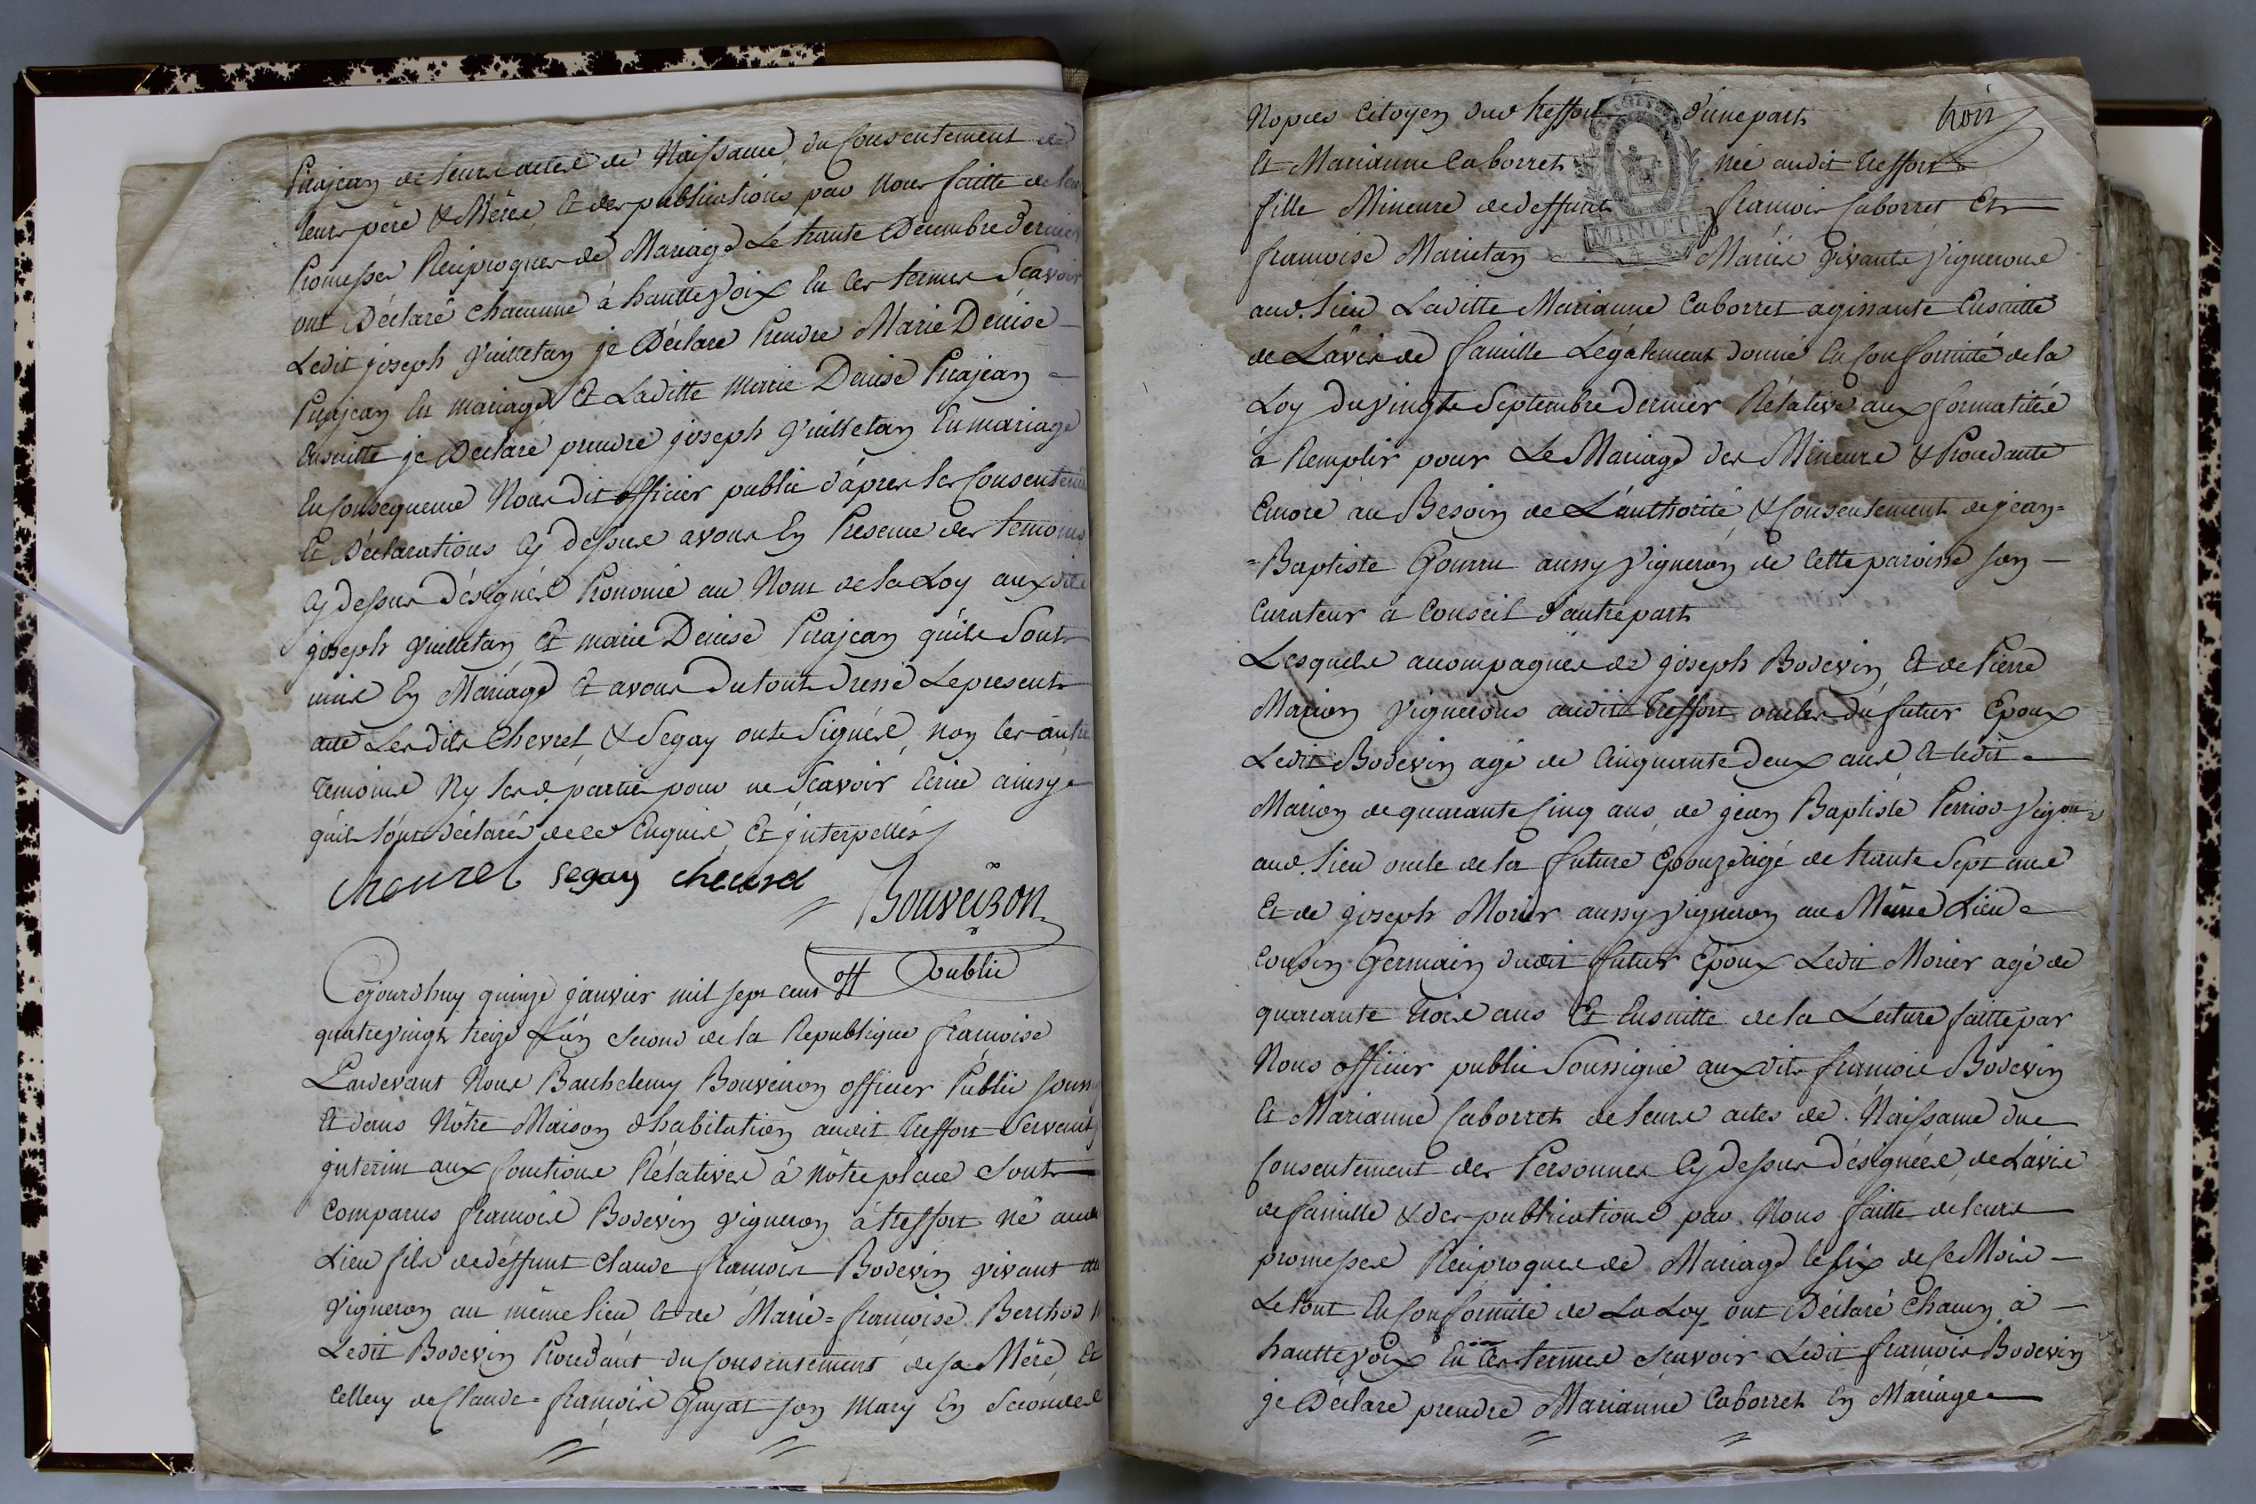 Pirajean de leurs actes de Naissance, du Consentement de
leurs père & Mères, Et des publications par Nous faitte de leur
Promesses Réciproques de Mariage Le trante Décembre dernier
ont Déclaré chacunne à hautte voix En Ces termes Scavoir
Ledit joseph Vuilletan je Déclare Prendre Marie Denise
Pirajean En mariage Et Laditte Marie Denise Pirajean
Ensuitte je Déclare prendre joseph Vuilletan En mariage
En Consequence Nous dit officier public d'après les Consentem
Et Déclarations Cy dessus avons En Présence des temoins
Cy dessus désignés Prononcé au Nom de la Loy auxdits
joseph Vuilletan Et marie Denise Pirajean qu'ils Sont
unis En Mariage Et avons du tout dressé Le present
acte Lesdits Chevrel & Segay ont Signés, non les autre
temoins Ny lesd. partie pour ne Scavoir Ecrire ainsy
qu'ils l'ont déclarés de ce Enquis Et jnterpellés
chevrel segay chevrel
Bouveiron
off Public
Cejourdhuy quinze janvier mil sept cent
quatrevingt treize L'an second de la Republique françoise
Pardevant Nous Barthelemy Bouveiron officier Public souss
Et dans Nôtre Maison d'habitation audit Treffort Servant
jnterim aux fonctions Rélatives à Nôtre place Sont
Comparus françois Bodevin vigneron à treffort né aud
Lieu fils de déffunt Claude françois Bodevin vivant
Vigneron au même lieu Et de Marie=françoise Berthod
Ledit Bodevin Procédant du Consentement de sa Mère Et
Celluy de Claude=françois Guyat son Mary En Secondes
Nopces Citoyen dud treffort d'une part
trois
Et Marianne Caborret née audit treffort
fille Mineure de deffunt françois Caborret Et
MINUT
françoise Marietan Mariés Vivante Vigneronne
aud. lieu Laditte Marianne Caborret agissante Ensuitte
de L'avis de famille Légalement donné En Conformité de la
Loy du vingt Septembre dernier Rélative aux formalités
à Remplir pour Le Mariage des Mineurs & Procédante
Encore au Besoin de L'authorité & Consentement de jean=
=Baptiste Gourru aussy Vigneron de Cette paroisse son
Curateur à Conseil d'autre part
Lesquels accompagnés de joseph Bodevin Et de Pierre
Marion Vignerons audit Treffort oncles du futur Epoux
Ledit Bodevin agé de Cinquante deux ans Et ledit
Marion de quarante Cinq ans, de jean Baptiste Perriod Vigon
aud. lieu oncle de la future Epouze agé de trante Sept ans
Et de joseph Morier aussy vigneron au Même Lieu
Cousin Germain dudit futur Epoux Ledit Morier agé de
quarante trois ans Et Ensuitte de la Lecture faitte par
Nous officier public Soussigné auxdits françois Bodevin
Et Marianne Caborret de leurs actes de Naissance du
Consentement des Personnes Cy Dessus désignées, de L'avis
de famille & des publications par Nous faitte de leurs
promesses Réciproques de Mariage le six de Ce Mois
Le tout En Conformité de La Loy ont Déclaré Chacun à
hautte voix En Ces termes Scavoir Ledit françois Bodevin
je Déclare prendre Marianne Caborret En Mariage